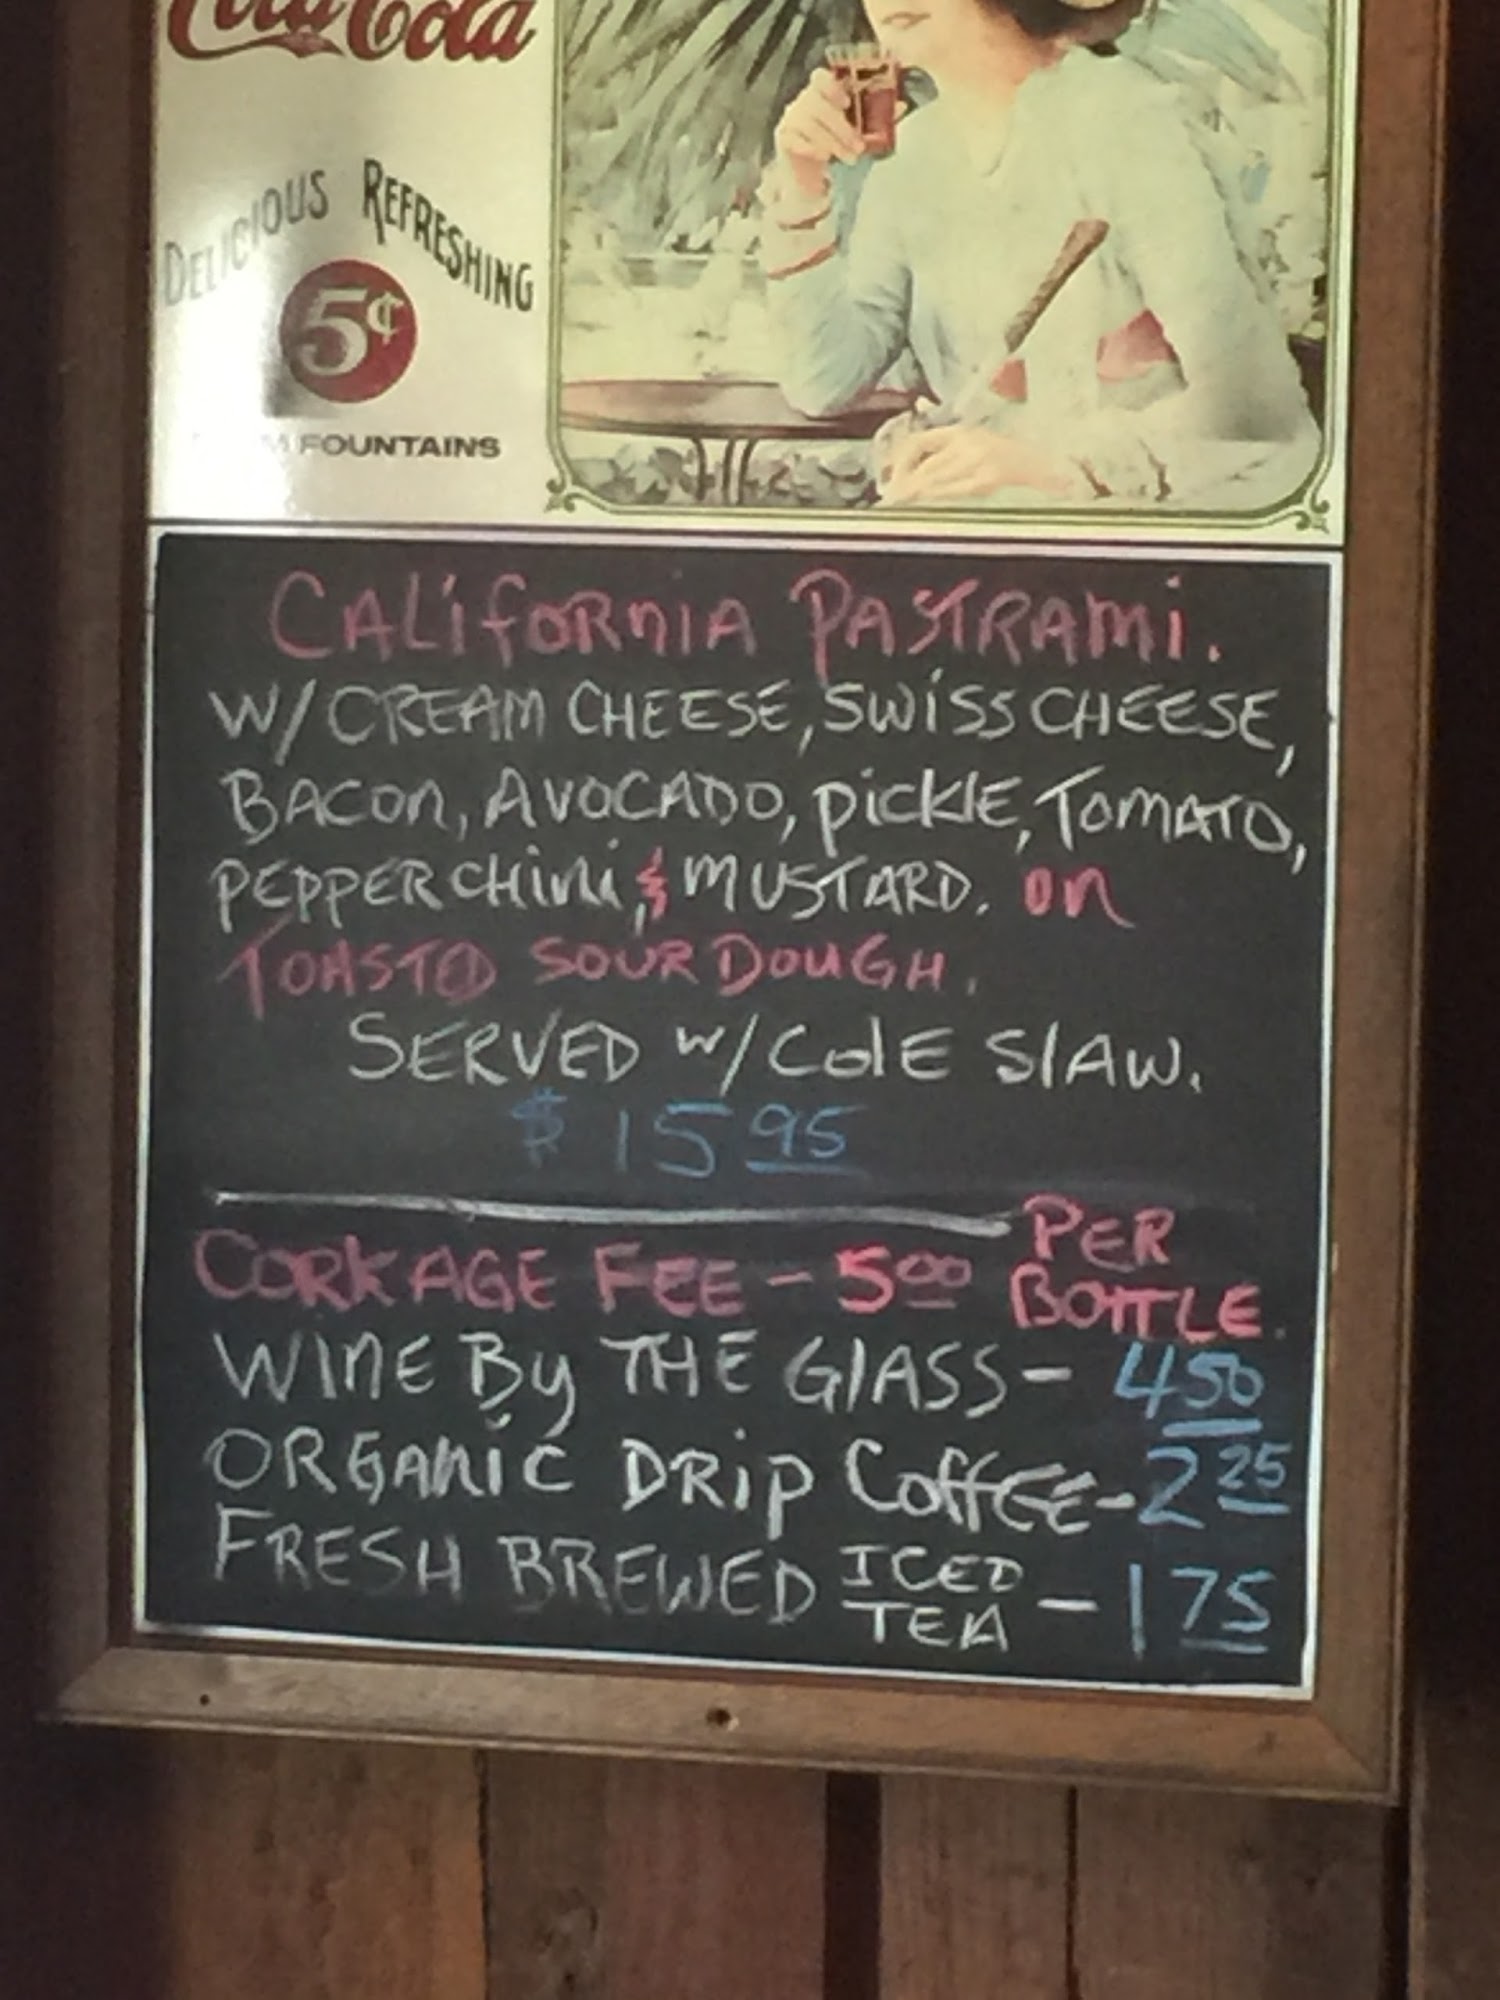 Coca-Cola
DELICIOUS REFRESHING
5¢
FOUNTAINS
CALiFORNIA PASTRAMi.
W/ CREAM CHEESE, SWiSS CHEESE,
BACON, AVOCADO, PiCKlE, TOMATO,
PEPPER CHiNi, & MUSTARD. ON
TOASTED SOUR DOUGH.
SERVED W/ COlE SlAW.
$ 15 95
CORKAGE FEE - 5 00 PER BOTTLE.
WINE By THE GlASS - 4 50
ORGANiC DRiP COffEE - 2 25
FRESH BREWED ICED TEA - 1 75